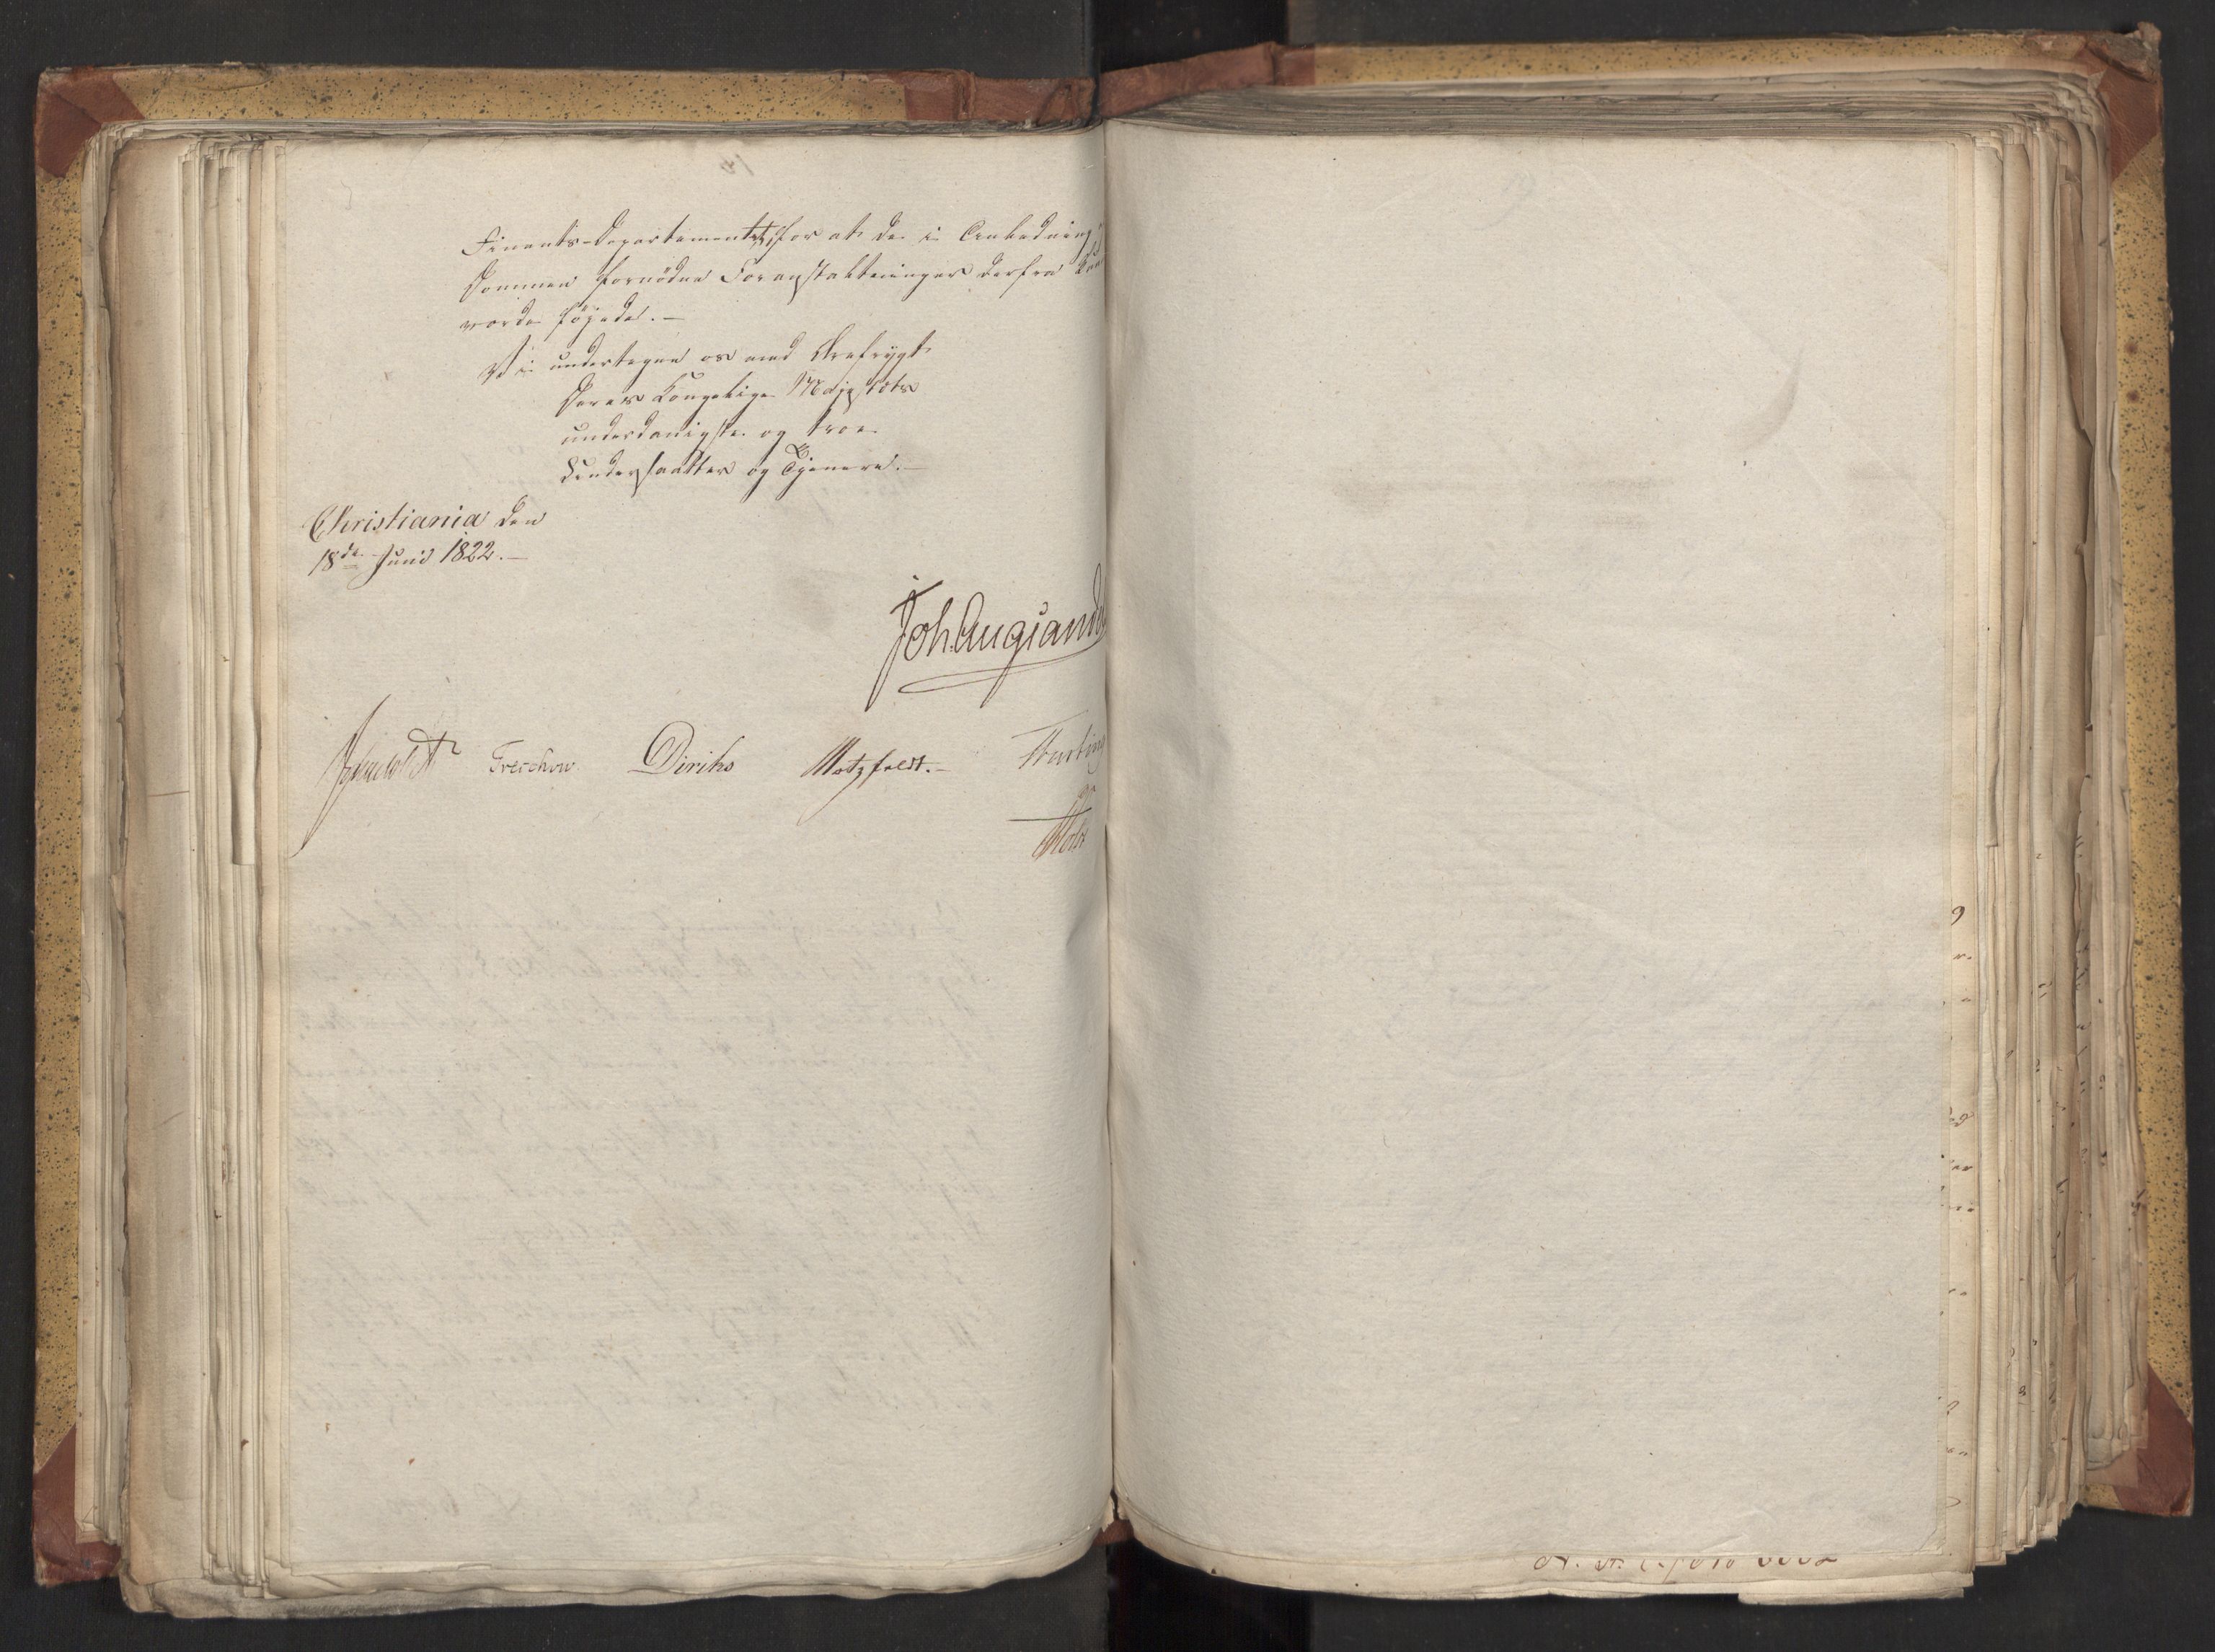 Finants-Departementet, for at de i Anledning
Sommen fornødne Foranstaltninger derfra kan
vorde føjede. -
Vi undertegne os med Ærefrygt
Deres Kongelige Majestæts
underdanigste og troe
Undersaatter og Tjenere. -
Christiania den
18de Junii 1822. -
Joh. Aug. Sande
Treschow Diriks Motzfeldt. -
Holst